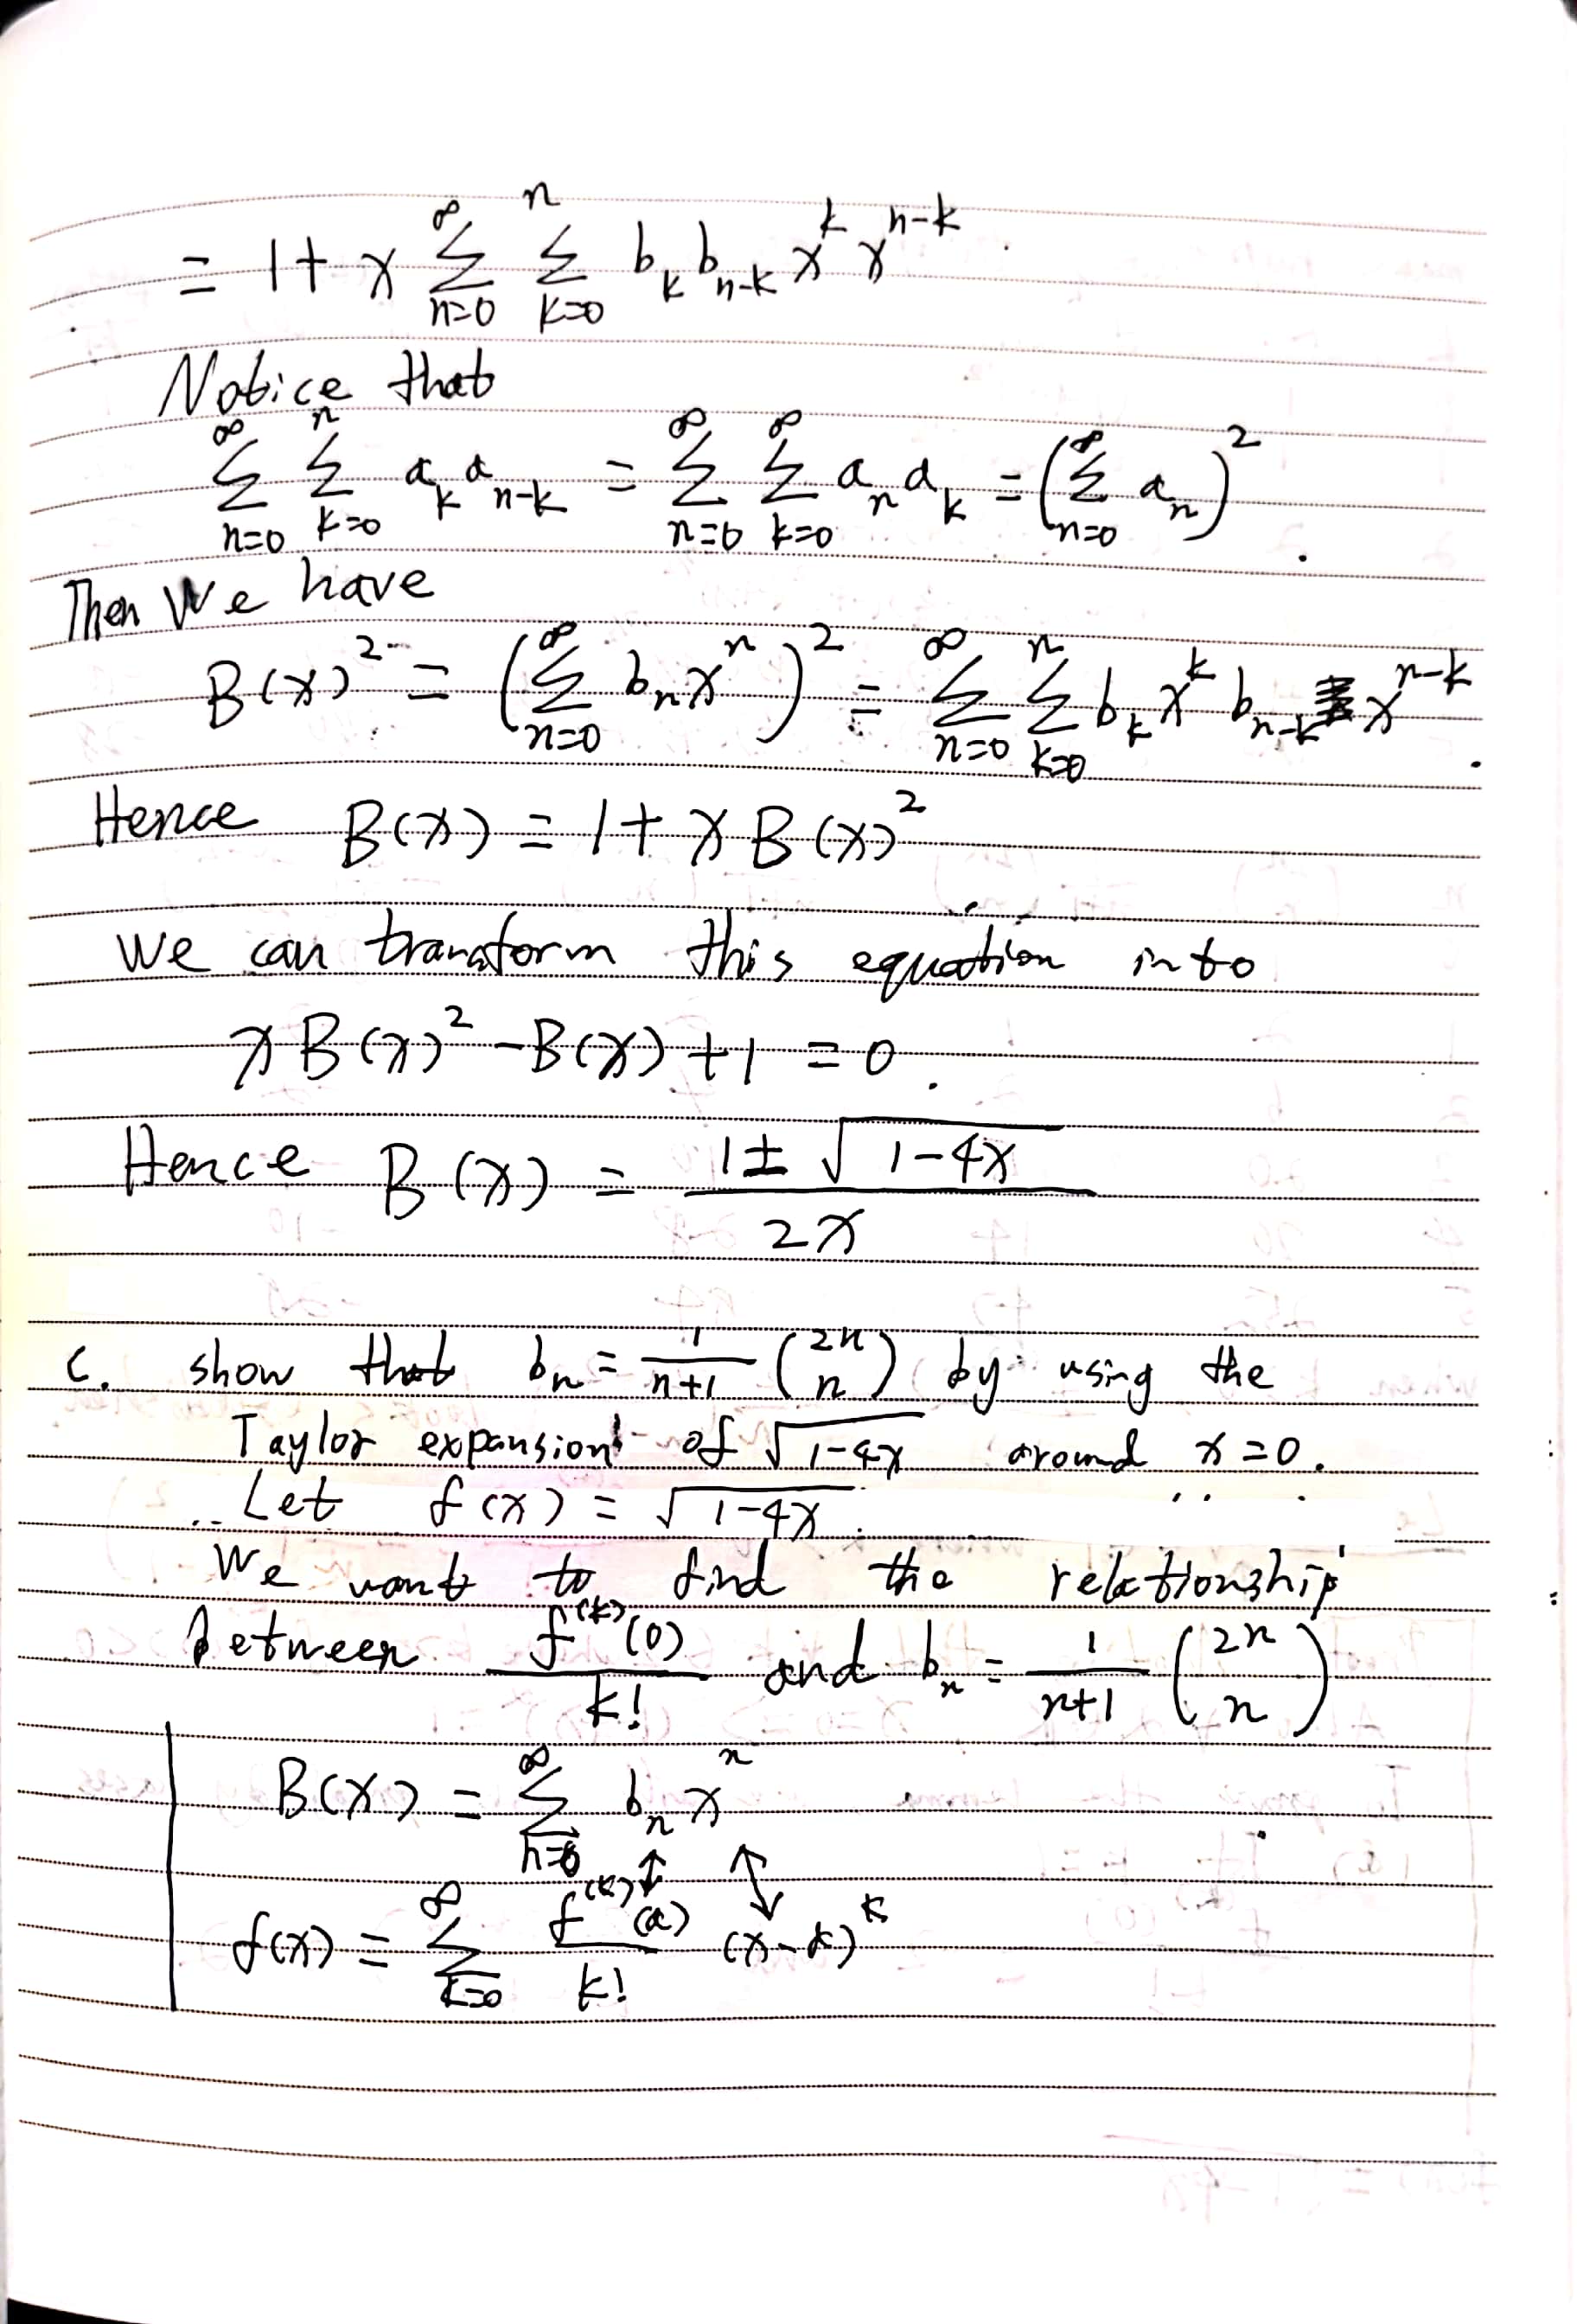 = 1 + x ∑_{n=0}^{∞} ∑_{k=0}^{n} b_k b_{n-k} x^k x^{n-k}.
Notice that
∑_{n=0}^{∞} ∑_{k=0}^{n} a_k a_{n-k} = ∑_{n=0}^{∞} ∑_{k=0}^{∞} a_n a_k = (∑_{n=0}^{∞} a_n)^2.
Then We have
B(x)^2 = (∑_{n=0}^{∞} b_n x^n)^2 = ∑_{n=0}^{∞} ∑_{k=0}^{n} b_k x^k b_{n-k} x^{n-k}.
Hence B(x) = 1 + x B(x)^2
We can transform this equation into
x B(x)^2 - B(x) + 1 = 0.
Hence B(x) = \frac{1 ± √(1-4x)}{2x}
c. show that b_n = \frac{1}{n+1} \binom{2n}{n} by using the
Taylor expansion of √(1-4x) around x=0.
Let f(x) = √(1-4x).
We want to find the relationship
between \frac{f^{(k)}(0)}{k!} and b_n = \frac{1}{n+1} \binom{2n}{n}
B(x) = ∑_{n=0}^{∞} b_n x^n
↕ ↕
f(x) = ∑_{k=0}^{∞} \frac{f^{(k)}(a)}{k!} (x-a)^k